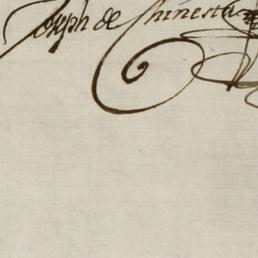 Joseph de Chinesta